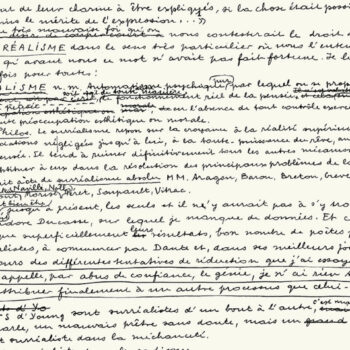 par de leur charme à être expliqués, si la chose était possi
dans le mérite de l'expression...»)
très mauvaise foi qu'on nous contesterait le droit d
RÉALISME dans le sens très particulier où nous l'ente
qu'avant nous ce mot n'avait pas fait fortune. Je l
fois pour toutes:
ALISME n. m. Automatisme psychique pur par lequel on se propo
fonctionnement réel de la pensée,
en l'absence de tout contrôle exerc
te préoccupation esthétique ou morale.
Philos. Le surréalisme repose sur la croyance à la réalité supérieu
ations négligées jusqu'à lui, à la toute-puissance du rêve, au
ensée. Il tend à ruiner définitivement tous les autres mécanis
stituer à eux dans la résolution des principaux problèmes de la
it acte de surréalisme absolu MM. Aragon, Baron, Breton, Creve
Naville, Noll,
Péret, Soupault, Vitrac.
jusqu'à présent, les seuls et il n'y aurait pas à s'y tro
idore Ducasse, sur lequel je manque de données. Et c
que superficiellement leurs résultats, bon nombre de poètes p
alistes, à commencer par Dante et, dans ses meilleurs jou
ours des différentes tentatives de réduction que j'ai essayé
appelle, par abus de confiance, le génie, je n'ai rien t
attribuer finalement à un autre processus que celui-
ts d'Young sont surréalistes d'un bout à l'autre,
parle, un mauvais prêtre sans doute, mais un
st surréaliste dans la méchanceté.